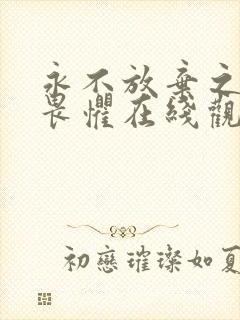 永不放棄之
畏懼在綫觀
初戀璀璨如夏